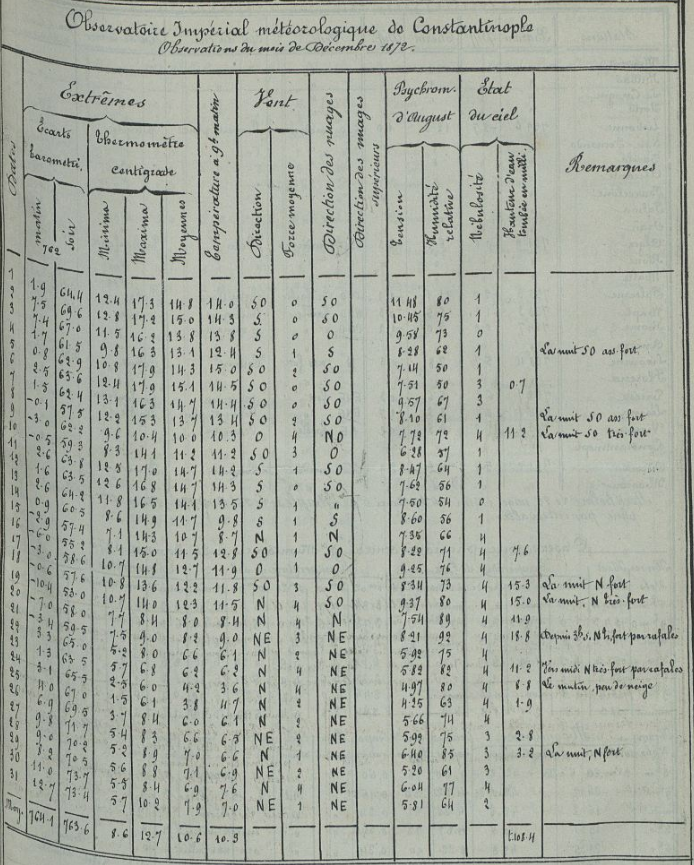 Observatoire Impérial météorologique de Constantinople
Observations du mois de Décembre 1872.
Dates
Extrêmes
Écarts barométri.
matin
762
soir
Thermomètre Centigrade
Minima
Maxima
Moyennes
Température à 9h matin
Vent
Direction
Force moyenne
Direction des nuages
Direction des nuages supérieurs
Psychrom. d'August
Tension
Humidité relative
État du ciel
Nébulosité
Hauteur d'eau tombée en milli.
Remarques
1 1.9 64.4 12.4 17.3 14.8 14.0 SO 0 SO 11.48 80 1
2 7.5 69.6 12.8 17.2 15.0 14.3 S 0 SO 10.45 75 1
3 7.4 67.0 11.5 16.2 13.8 13.8 S 0 O 9.58 73 0
4 1.7 61.5 9.8 16.3 13.1 12.4 S 1 S 8.28 62 1 La nuit SO ass. fort
5 0.8 62.9 10.8 17.9 14.3 15.0 SO 2 SO 7.14 50 1
6 2.5 63.6 12.4 17.9 15.1 14.5 SO 0 SO 7.51 50 3 0.7
7 1.5 62.4 13.1 16.3 14.7 14.4 SO 0 SO 9.57 67 3
8 -0.1 57.5 12.2 15.3 13.7 13.4 SO 2 SO 8.10 61 1 La nuit SO ass. fort
9 -3.0 62.2 9.6 10.4 10.0 10.3 O 4 NO 7.72 72 4 11.2 La nuit SO très fort
10 -0.5 59.3 8.3 14.1 11.2 11.2 SO 3 O 6.28 57 1
11 2.6 63.8 12.5 17.0 14.7 14.2 S 1 SO 8.47 64 1
12 1.6 63.5 12.6 16.8 14.7 14.3 S 0 SO 7.62 56 1
13 2.5 64.2 11.8 16.5 14.1 13.5 S 1 " 7.50 54 0
14 0.9 60.5 8.6 14.9 11.7 9.8 S 1 S 8.60 56 1
15 -2.9 57.4 7.1 14.3 10.7 8.7 N 1 N 7.35 66 4
16 -6.0 55.2 8.1 15.0 11.5 12.8 SO 1 SO 8.22 71 4 7.6
17 -3.0 58.6 10.7 14.8 12.7 11.9 O 0 O 9.25 76 4
18 -0.6 57.6 10.8 13.6 12.2 11.8 SO 3 SO 8.34 73 4 15.3 La nuit N fort
19 -10.4 53.0 10.7 14.0 12.3 11.5 N 4 SO 9.37 80 4 15.0 La nuit, N très fort
20 -7.0 58.0 7.7 8.4 8.0 8.4 N 4 N 7.54 89 4 11.9
21 -3.4 59.5 7.5 9.0 8.2 9.0 NE 3 NE 8.21 92 4 18.8 Depuis 3h s. N tr. fort par rafales
22 3.3 65.0 5.2 8.0 6.6 6.1 N 2 NE 5.92 75 4
23 1.3 63.5 5.7 6.8 6.2 6.2 N 4 NE 5.82 82 4 11.2 Vers midi N très fort par rafales
24 3.1 65.5 2.5 6.0 4.2 3.6 N 4 NE 4.97 80 4 8.8 Le matin, peu de neige
25 4.0 67.0 1.5 6.1 3.8 4.7 N 2 NE 4.25 63 4 1.9
26 6.9 69.5 3.7 8.4 6.0 6.1 N 2 NE 5.66 74 4
27 9.8 71.7 5.4 8.3 6.6 6.5 NE 2 NE 5.92 75 3 2.8
28 2.9 70.2 5.2 8.9 7.0 6.6 N 1 NE 6.40 85 3 3.2 La nuit, N fort
29 8.2 70.5 5.6 8.8 7.1 6.9 NE 2 NE 5.20 61 3
30 11.0 73.7 5.5 8.4 6.9 7.6 N 4 NE 6.04 77 4
31 12.7 73.4 5.7 10.2 7.9 7.0 NE 1 NE 5.81 64 2
Moy. 764.1 763.6 8.6 12.7 10.6 10.3 t.108.4